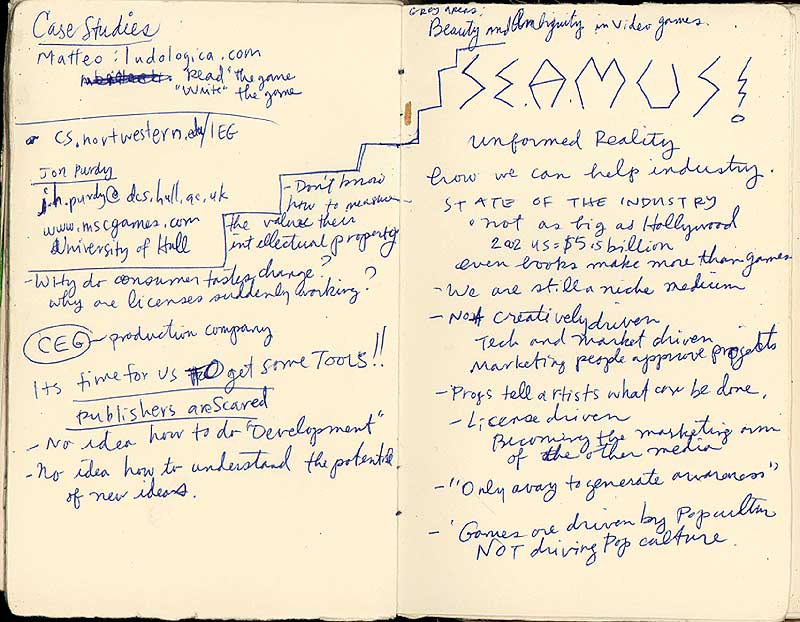 Case Studies
Matteo: ludologica.com
"Read" the game
"Write" the game
cs.nortwestern.edu/IEG
Jon Purdy
j.h.purdy@dcs.hull.ac.uk
www.mscgames.com
University of Hull
- Don't know
how to measure
the value their
intellectual property
- Why do consumer tastes change?
why are licenses suddenly working?
CEG - production company
Its time for us to get some Tools!!
Publishers are Scared
- No idea how to do "Development"
- No idea how to understand the potential
of new ideas.
GREY AREAS:
Beauty and Ambiguity in Video games.
S.E.A.M.U.S!
Unformed Reality
how we can help industry.
STATE OF THE INDUSTRY
• not as big as Hollywood
2002 US = $5.5 billion
even books make more than games
- We are still a niche medium
- Not creatively driven
Tech and market driven
Marketing people approve projects
- Progs tell artists what can be done.
- License driven
Becoming the marketing arm
of the other media
- "Only away to generate awareness"
- 'Games are driven by Pop culture
NOT driving Pop culture.